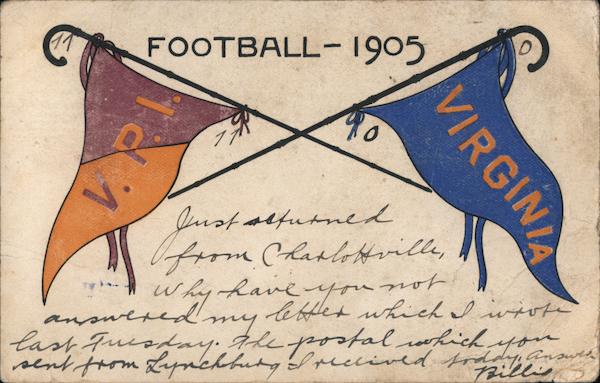 FOOTBALL - 1905
11
0
V. P. I.
VIRGINIA
11
0
Just returned
from Charlottville,
Why have you not
answered my letter which I wrote
last Tuesday. The postal which you
sent from Lynchburg I recieved today. Answer
Billie